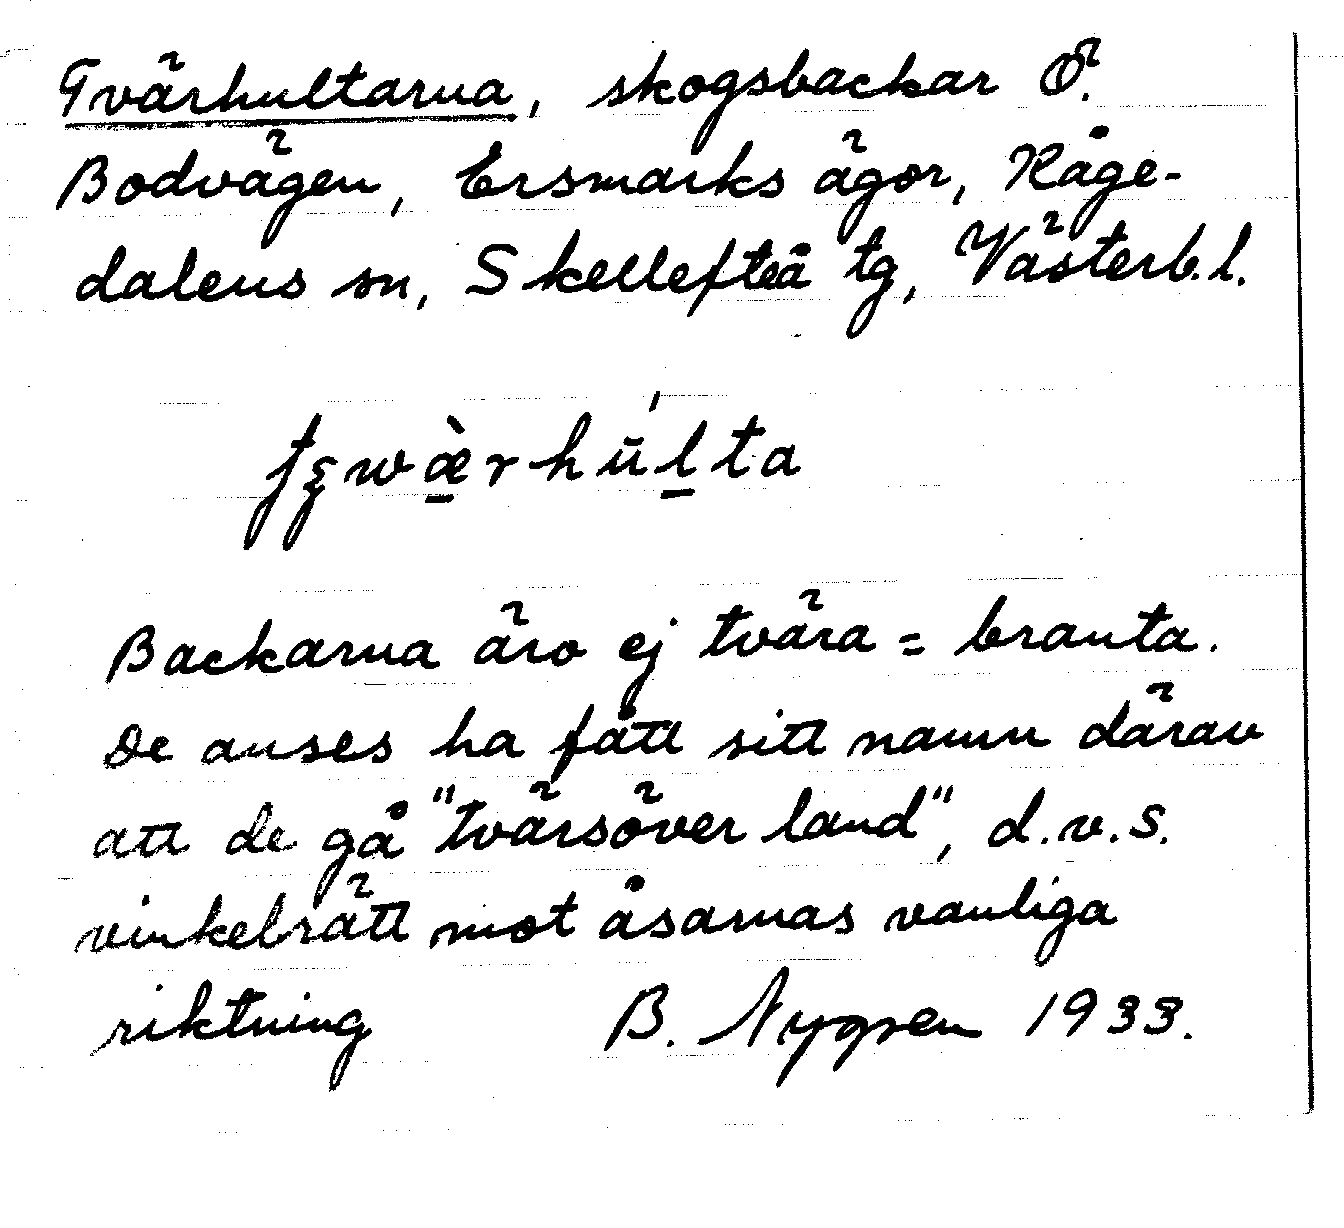 Tvärhultarna, skogsbackar Ö.
Bodvägen, Ersmarks ägor, Kåge-
dalens sn, Skellefteå tg, Västerb. l.
Backarna äro ej tvära = branta.
De anses ha fått sitt namn därav
att de gå "tvärsöver land", d.v.s.
vinkelrätt mot åsarnas vanliga
riktning B. Nygren 1933.